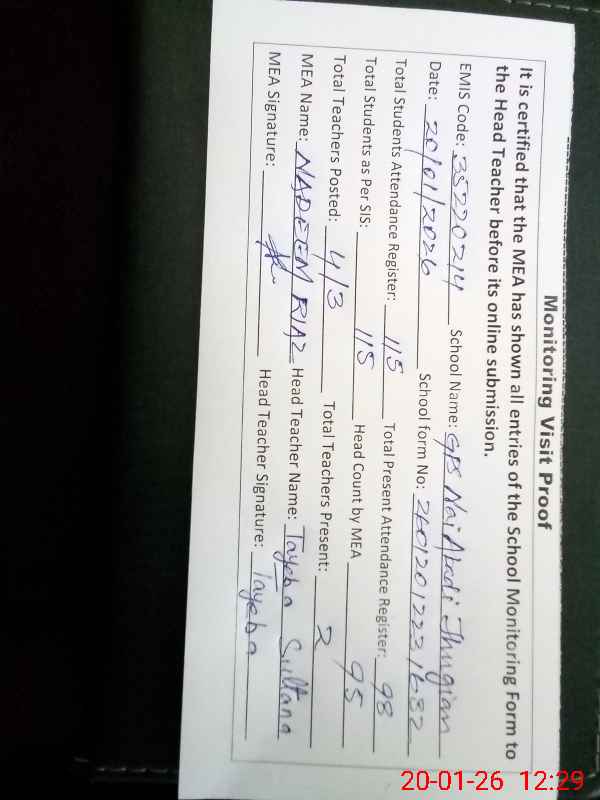 Monitoring Visit Proof
It is certified that the MEA has shown all entries of the School Monitoring Form to
the Head Teacher before its online submission.
EMIS Code: 35220214 School Name: GPS Nai Abadi Jhugian
Date: 20/01/2026 School form No: 260120122231632
Total Students Attendance Register: 115 Total Present Attendance Register: 98
Total Students as Per SIS: 115 Head Count by MEA 95
Total Teachers Posted: 4/3 Total Teachers Present: 2
MEA Name: NADEEM RIAZ Head Teacher Name: Tayeba Sultana
MEA Signature: Head Teacher Signature: Tayeba
20-01-26 12:29